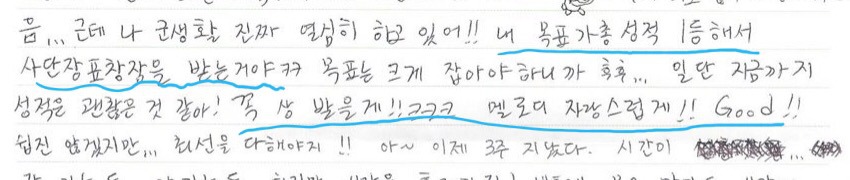 음... 근데 나 군생활 진짜 열심히 하고 있어!! 내 목표가 총 성적 1등해서
사단장표창장을 받는거야ㅋㅋ 목표는 크게 잡아야하니까 후후... 일단 지금까지
성적은 괜찮은 것 같아! 꼭 상 받을게!!ㅋㅋㅋ 멜로디 자랑스럽게!! Good!!
쉽진 않겠지만... 최선을 다해야지!! 아~ 이제 3주 지났다. 시간이 ...